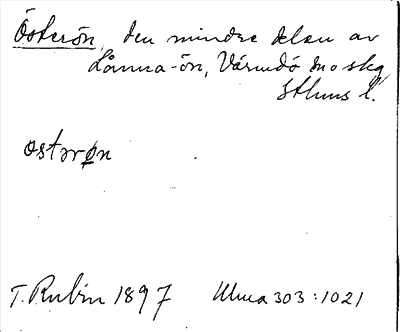 Österön, den mindre delen av
Lånna-ön, Värmdö sn o skg
Sthms l.
ostərøn
T. Rubin 1897 Ulma 303:1021